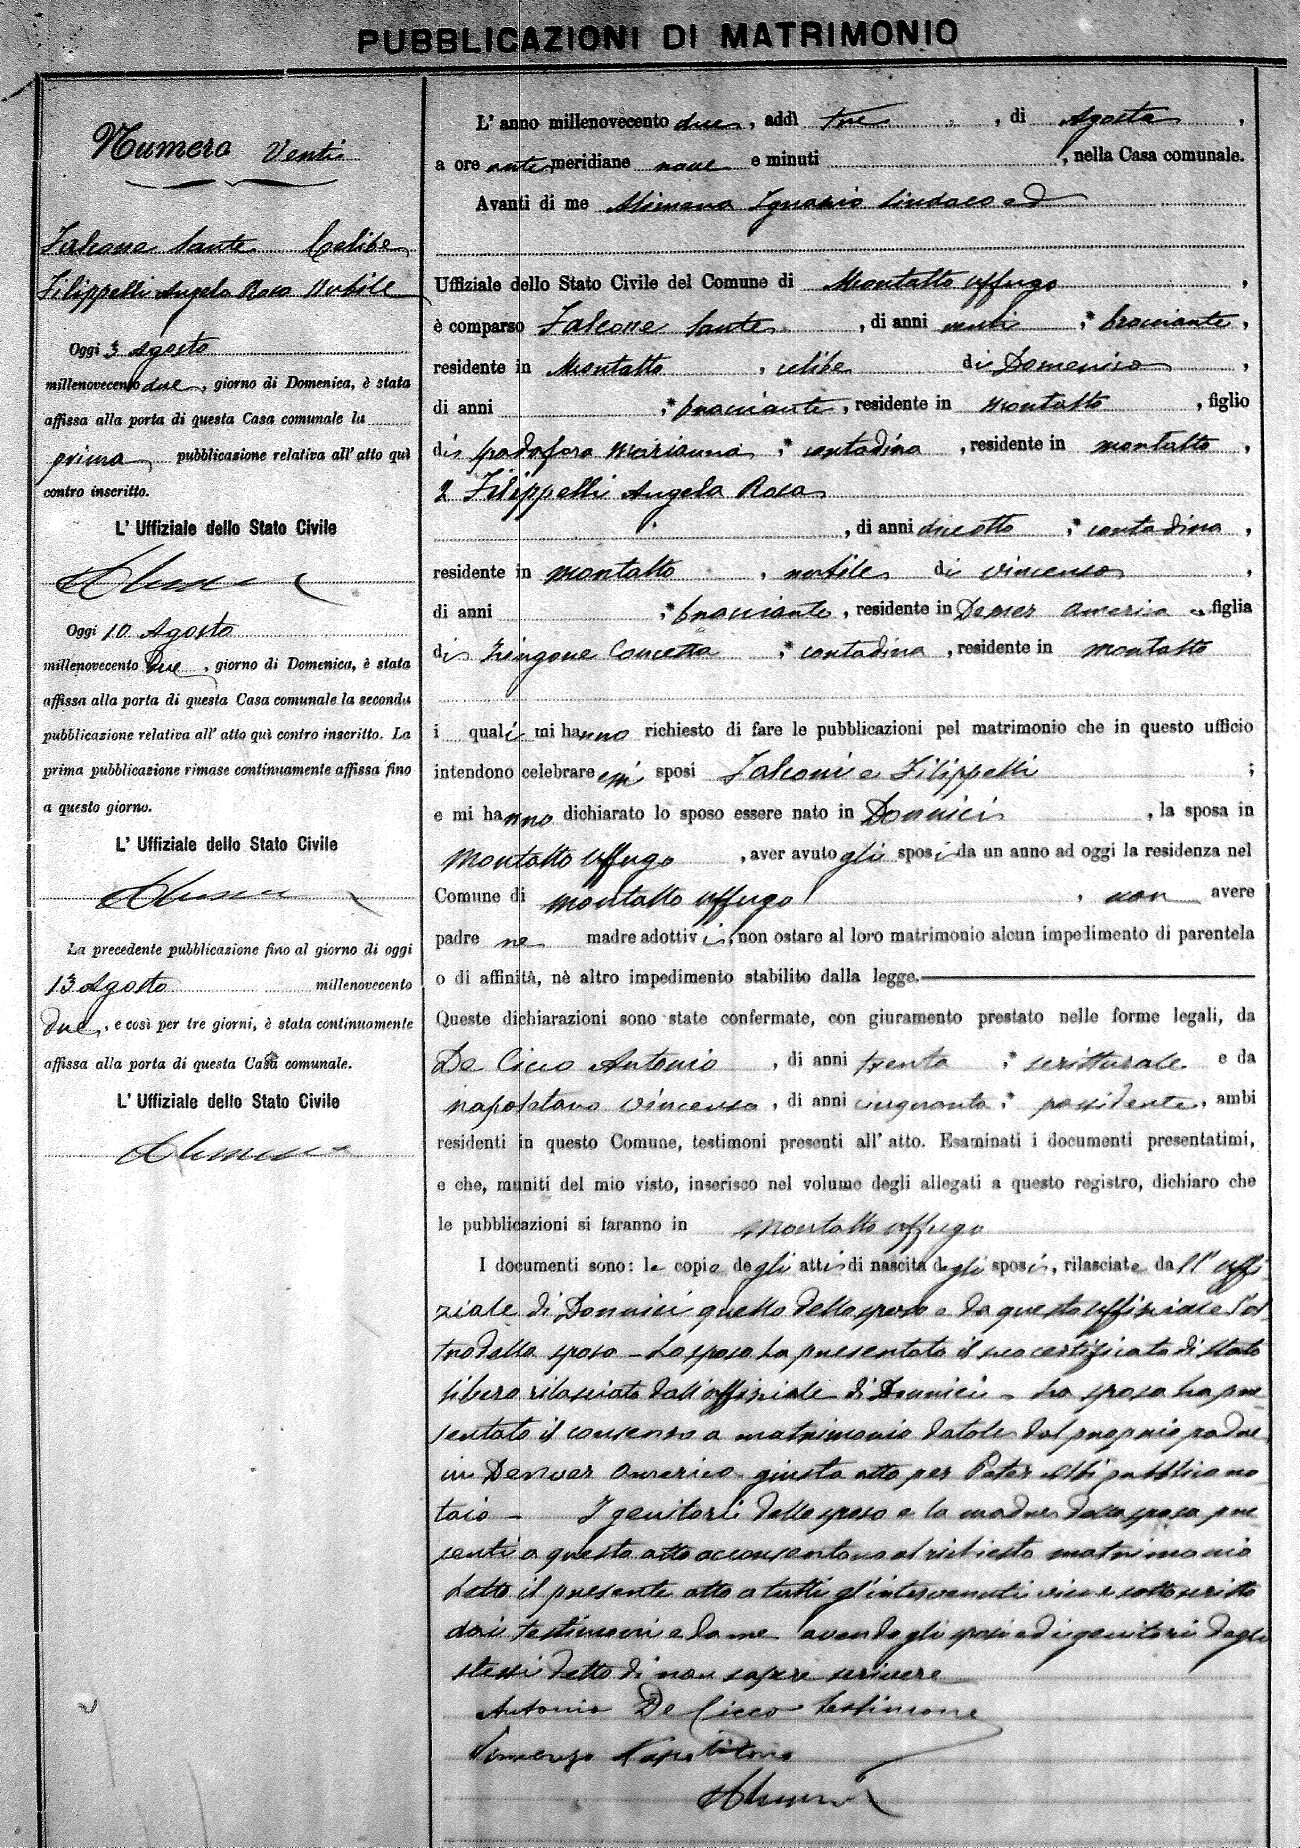 PUBBLICAZIONI DI MATRIMONIO
Numero Venti
Falcone Sante Celibe
Filippelli Angela Rosa Nubile
Oggi 3 Agosto
millenovecento due, giorno di Domenica, è stata
affissa alla porta di questa Casa comunale la
prima pubblicazione relativa all' atto quì
contro inscritto.
L' Uffiziale dello Stato Civile
Oggi 10 Agosto
millenovecento due, giorno di Domenica, è stata
affissa alla porta di questa Casa comunale la seconda
pubblicazione relativa all' atto quì contro inscritto. La
prima pubblicazione rimase continuamente affissa fino
a questo giorno.
L' Uffiziale dello Stato Civile
La precedente pubblicazione fino al giorno di oggi
13 Agosto millenovecento
due, e così per tre giorni, è stata continuamente
affissa alla porta di questa Casa comunale.
L' Uffiziale dello Stato Civile
L' anno millenovecento due, addì tre, di Agosto,
a ore antemeridiane nove e minuti , nella Casa comunale.
Avanti di me Alimena Ignazio Sindaco ed
Uffiziale dello Stato Civile del Comune di Montalto Uffugo,
è comparso Falcone Sante, di anni venti, * bracciante,
residente in Montalto, celibe di Domenico,
di anni , * bracciante, residente in Montalto, figlio
di Spadafora Marianna, * contadina, residente in Montalto,
2 Filippelli Angela Rosa
, di anni diciotto, * contadina,
residente in Montalto, nubile di Vincenzo,
di anni , * bracciante, residente in Denver America, figlia
di Mingone Concetta, * contadina, residente in Montalto
i quali mi hanno richiesto di fare le pubblicazioni pel matrimonio che in questo ufficio
intendono celebrare essi sposi Falconi e Filippelli ;
e mi hanno dichiarato lo sposo essere nato in Donnici, la sposa in
Montalto Uffugo, aver avuto gli sposi da un anno ad oggi la residenza nel
Comune di Montalto Uffugo, non avere
padre ne madre adottivi, non ostare al loro matrimonio alcun impedimento di parentela
o di affinità, nè altro impedimento stabilito dalla legge.
Queste dichiarazioni sono state confermate, con giuramento prestato nelle forme legali, da
De Cicco Antonio, di anni trenta, * scritturale e da
Napolitano Vincenzo, di anni cinquanta, * possidente, ambi
residenti in questo Comune, testimoni presenti all' atto. Esaminati i documenti presentatimi,
e che, muniti del mio visto, inserisco nel volume degli allegati a questo registro, dichiaro che
le pubblicazioni si faranno in Montalto Uffugo
I documenti sono: le copie degli atti di nascita degli sposi, rilasciate da ll'uffi
ziale di Donnici quello dello sposo e da questo uffiziale l'al
tro della sposa - Lo sposo ha presentato il suo certificato di stato
libero rilasciato dall'uffiziale di Donnici - La sposa ha pre
sentato il consenso a matrimonio datole dal proprio padre
in Denver America giusta atto per Peter Albi pubblico no
taio - I genitori dello sposo e la madre della sposa pre
senti a questo atto acconsentono al richiesto matrimonio
Letto il presente atto a tutti gl'intervenuti viene sottoscritto
dai testimoni e da me avendo gli sposi ed i genitori degli
stessi detto di non sapere scrivere
Antonio De Cicco testimone
Vincenzo Napolitano
Alimena